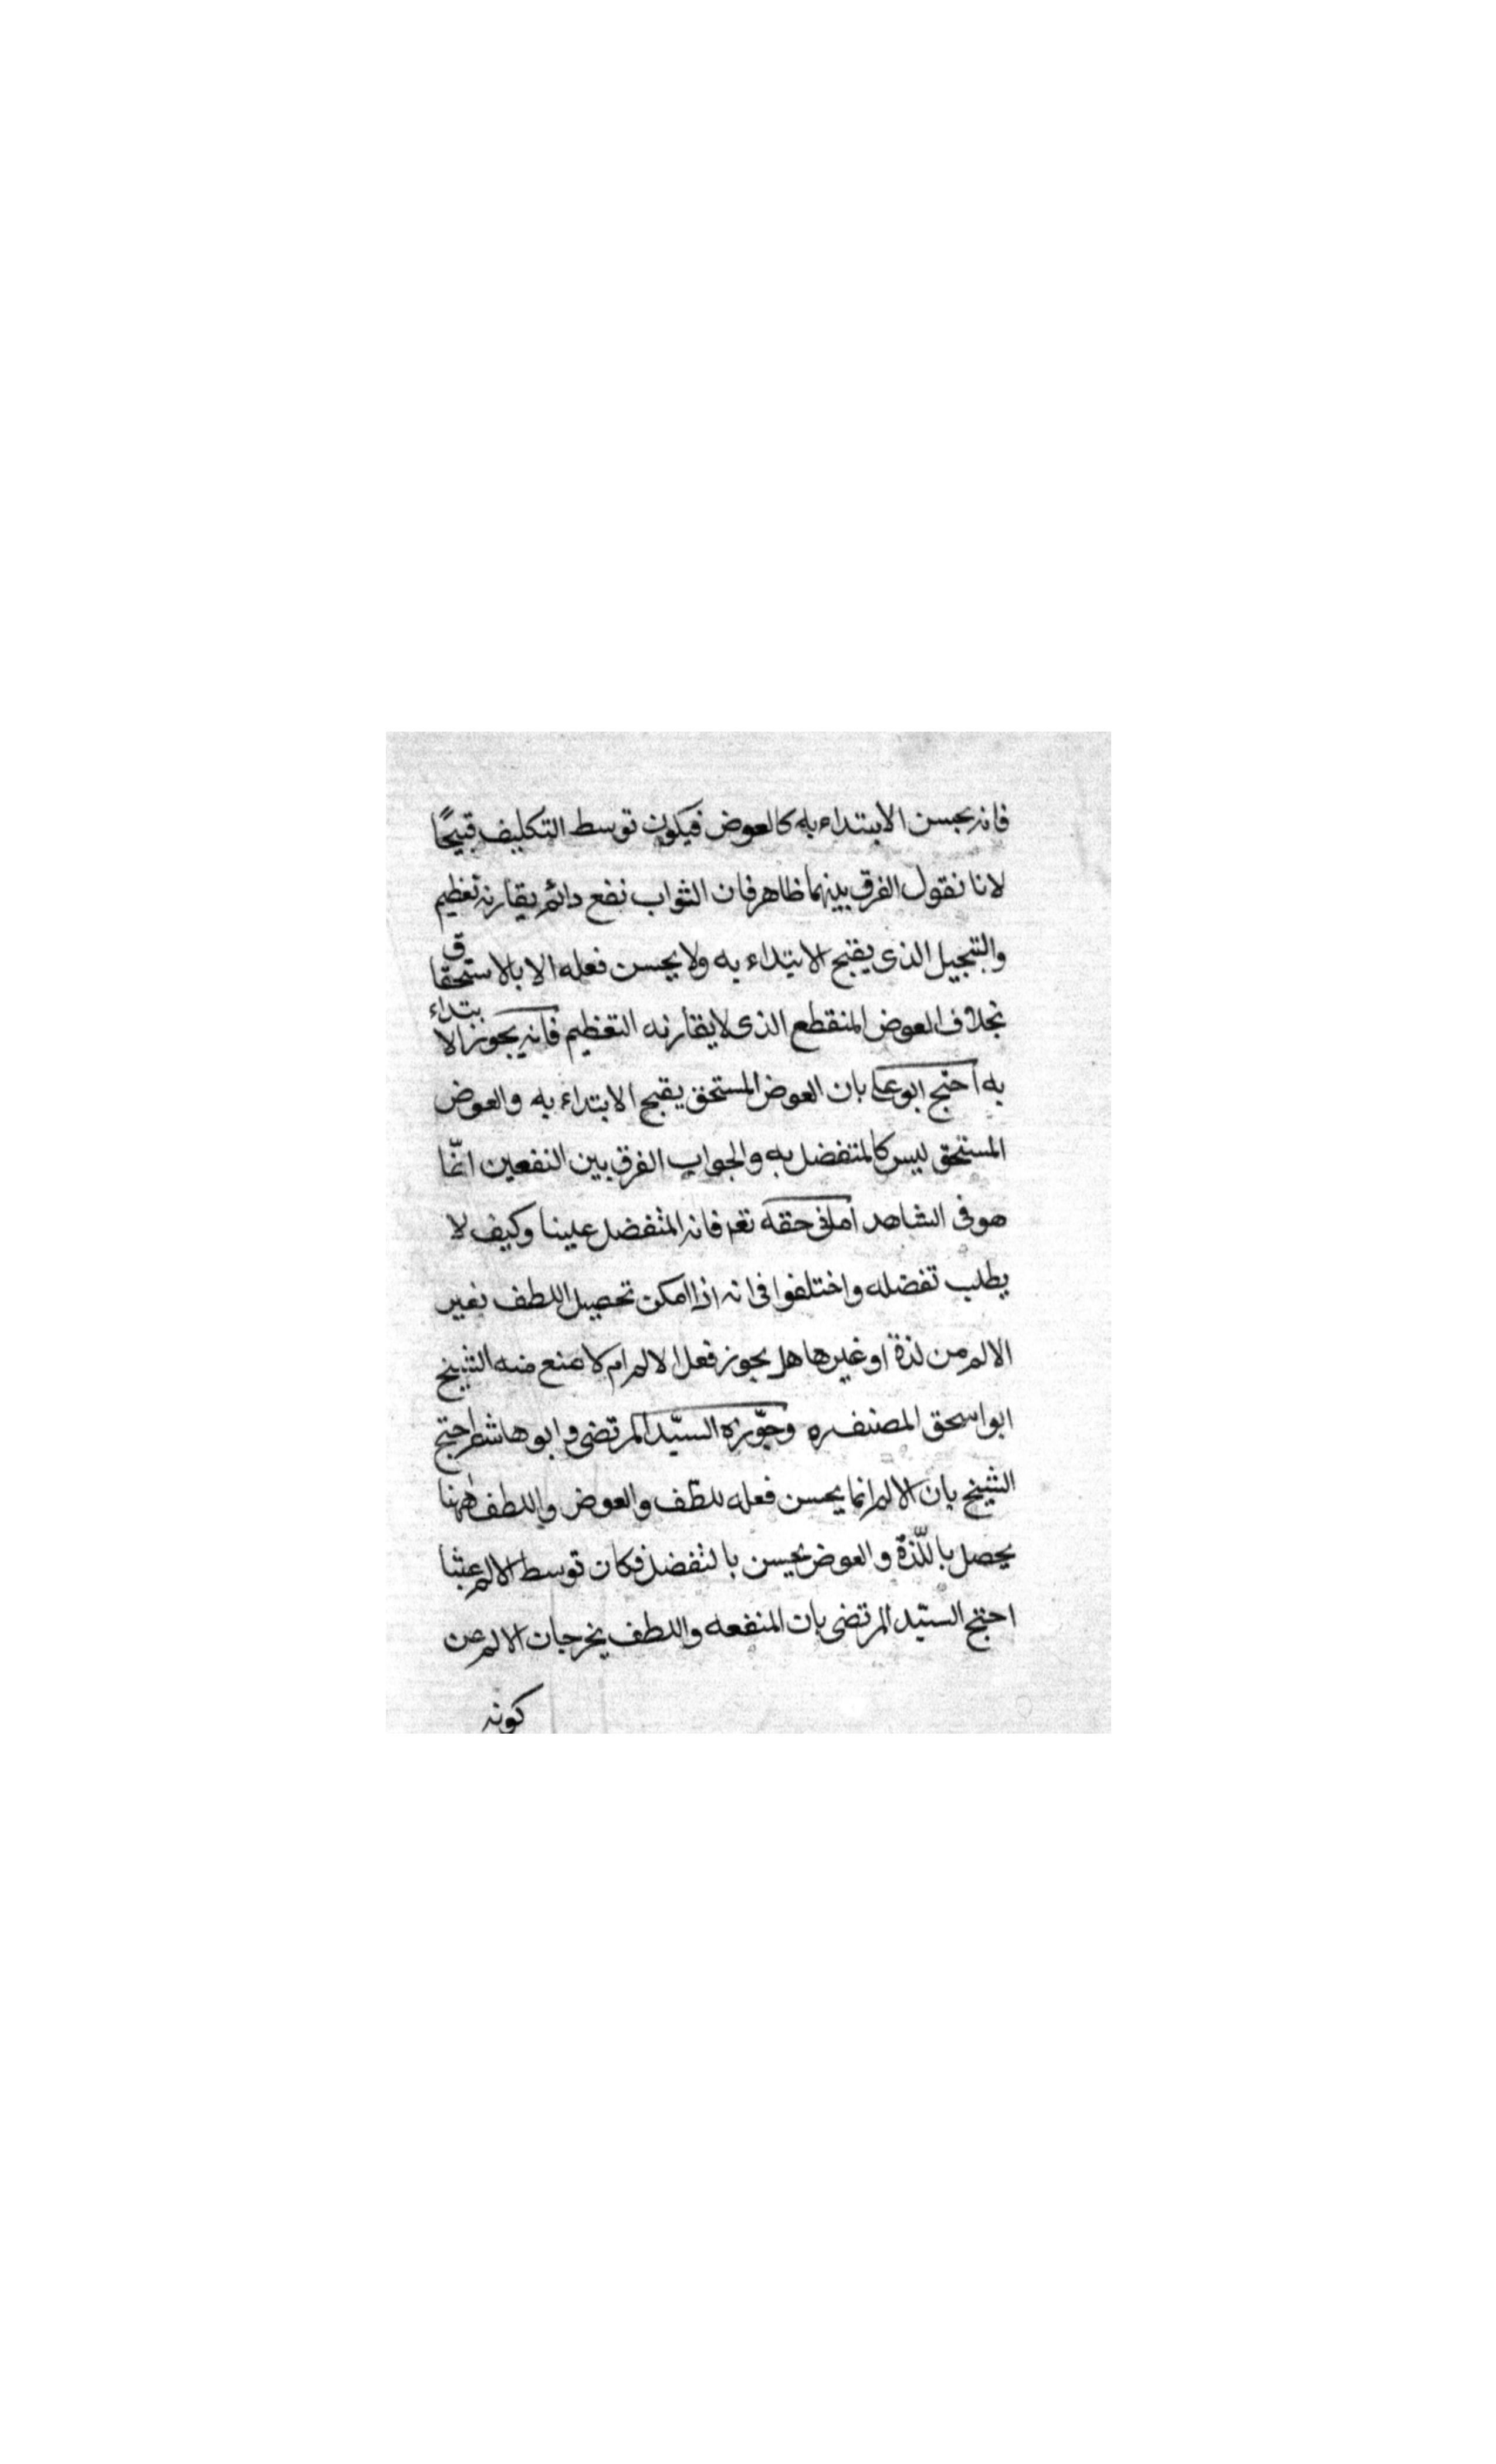 فانه يحسن الابتداء به كالعوض فيكون توسط التكليف قبيحًا
لانا نقول الفرق بينهما ظاهر فان الثواب نفع دائم يقارنه تعظيم
والتبجيل الذى يقبح الابتداء به ولا يحسن فعله الا بالاستحقاق
بخلاف العوض المنقطع الذى لا يقارنه التعظيم فانه يجوز الابتداء
به احتج ابو على بان العوض المستحق يقبح الابتداء به والعوض
المستحق ليس كالمتفضل به والجواب الفرق بين النفعين انّما
هو فى الشاهد اما فى حقه تعم فانه المتفضل علينا وكيف لا
يطلب تفضله واختلفوا فى انه اذا امكن تحصيل اللطف بغير
الالم من لذة او غيرها هل يجوز فعل الالم ام لا منع منه الشيخ
ابو اسحق المصنف ره وجوّزه السيّد المرتضى و ابو هاشم احتج
الشيخ بان الالم انما يحسن فعله للطف والعوض واللطف ههنا
يحصل باللّذة والعوض يحسن بالتفضل فكان توسط الالم عبثا
احتج السيّد المرتضى بان المنفعه واللطف يخرجان الالم عن
كونه